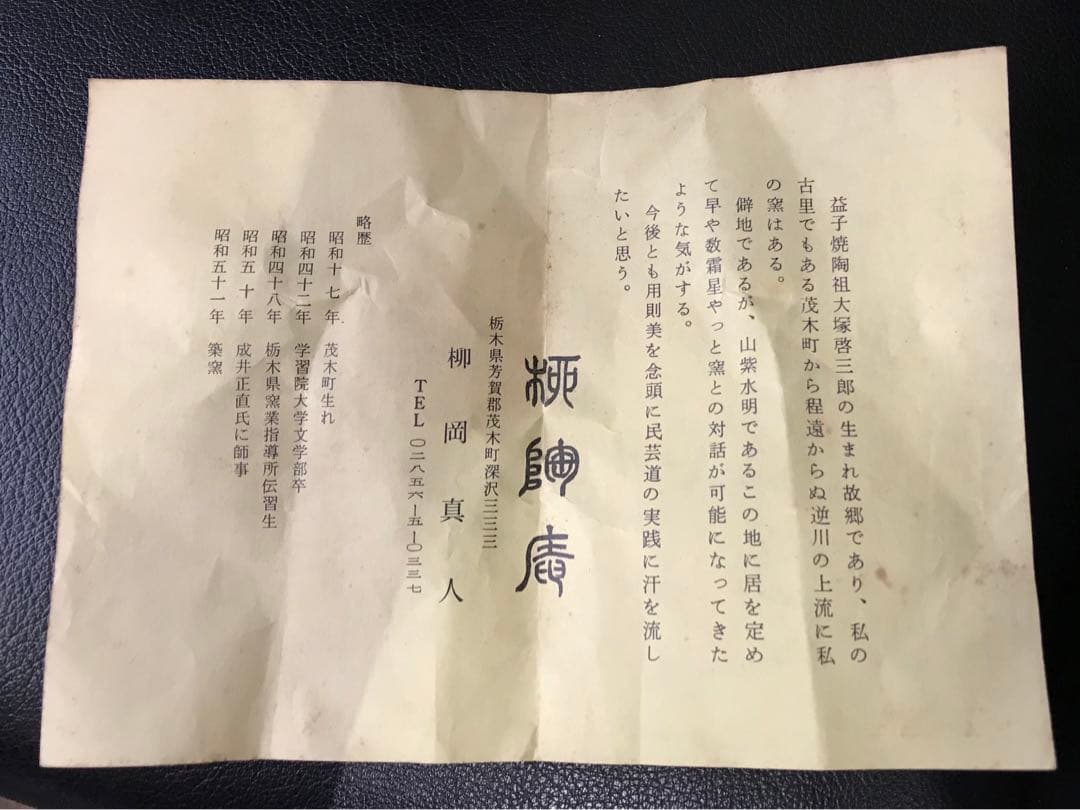 益子焼陶祖大塚啓三郎の生まれ故郷であり、私の
古里でもある茂木町から程遠からぬ逆川の上流に私
の窯はある。
僻地であるが、山紫水明であるこの地に居を定め
て早や数霜星やっと窯との対話が可能になってきた
ような気がする。
今後とも用則美を念頭に民芸道の実践に汗を流し
たいと思う。
柳陶庵
栃木県芳賀郡茂木町深沢三三三
柳岡真人
TEL 〇二八五六ー五ー〇三三七
略歴
昭和十七年 茂木町生れ
昭和四十二年 学習院大学文学部卒
昭和四十八年 栃木県窯業指導所伝習生
昭和五十年 成井正直氏に師事
昭和五十一年 築窯